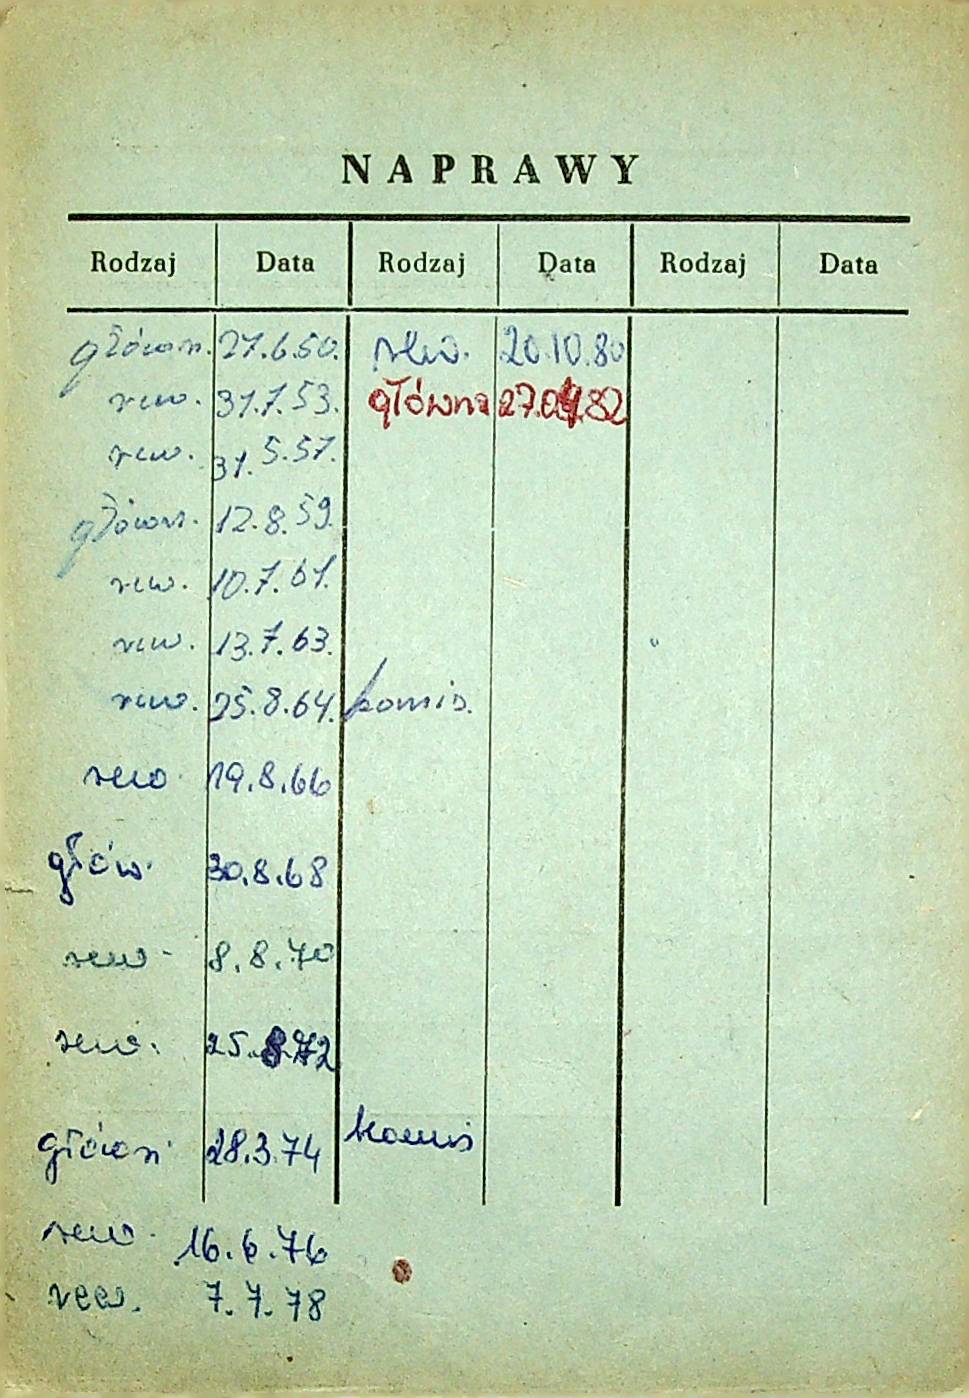 NAPRAWY
Rodzaj Data Rodzaj Data Rodzaj Data
główn. 27.6.50. rew. 20.10.80
rew. 31.7.53. główna 27.04.82
rew. 31.5.57.
główn. 12.8.59.
rew. 10.7.61.
rew. 13.7.63.
rew. 25.8.64. komis.
rew. 19.8.66
głów. 30.8.68
rew. 8.8.70
rew. 25.8.72
główn. 28.3.74 komis
rew. 16.6.76
rew. 7.7.78